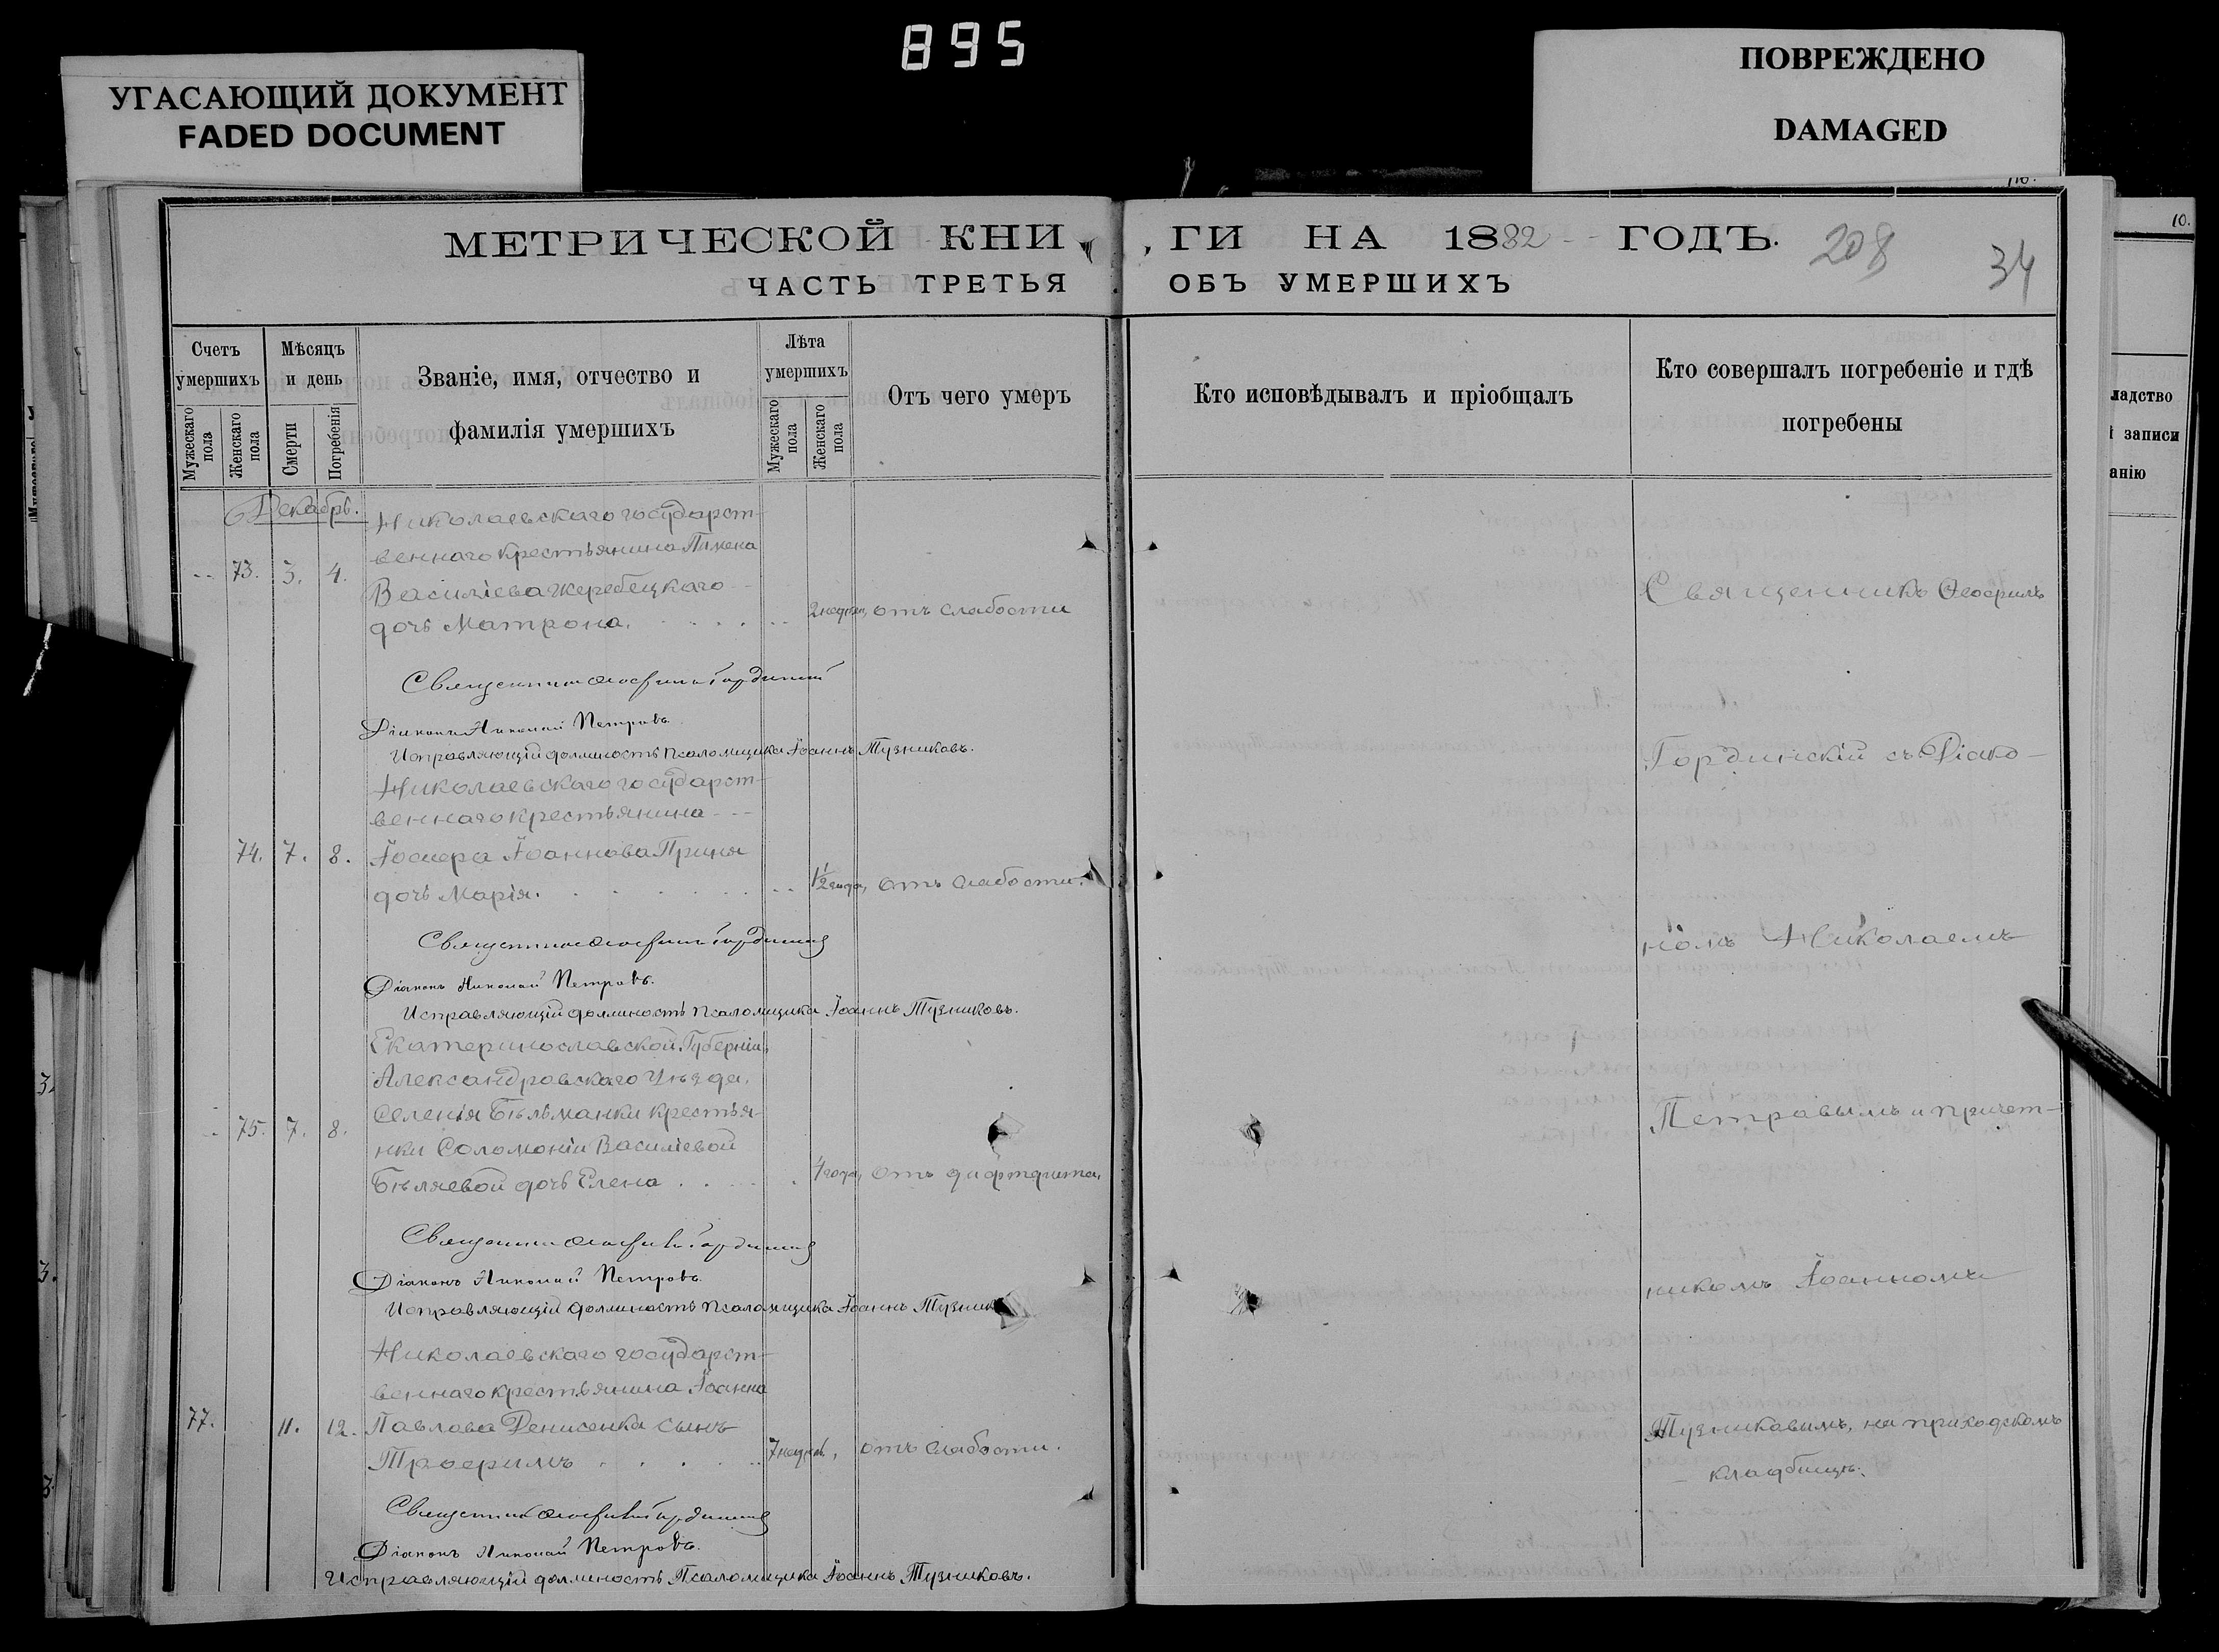 895
УГАСАЮЩИЙ ДОКУМЕНТ
FADED DOCUMENT
ПОВРЕЖДЕНО
DAMAGED
МЕТРИЧЕСКОЙ КНИ
ГИ НА 1882 ГОДЪ.
208
34
ЧАСТЬ ТРЕТЬЯ
ОБЪ УМЕРШИХЪ
Счетъ умершихъ
Мужескаго пола
Женскаго пола
Мѣсяцъ и день
Смерти
Погребенія
Званіе, имя, отчество и
фамилія умершихъ
Лѣта умершихъ
Мужескаго пола
Женскаго пола
Отъ чего умеръ
Кто исповѣдывалъ и пріобщалъ
Кто совершалъ погребеніе и гдѣ
погребены
10.
ладство
записи
анію
Декабрь.
Николаевскаго государст-
веннаго крестьянина Пимена
73. 3. 4. Василіева Жеребецкаго
дочь Матрона. 2 недѣли, отъ слабости
Священникъ Гординскій
Діаконъ Николай Петровъ.
Исправляющій должность псаломщика Іоаннъ Тузниковъ.
Николаевскаго государст-
веннаго крестьянина
74. 7. 8. Іосифа Іоаннова
дочь Марія. 1½ года, отъ слабости.
Священникъ Гординскій
Діаконъ Николай Петровъ.
Исправляющій должность псаломщика Іоаннъ Тузниковъ.
Екатеринославской Губерніи,
Александровскаго Уѣзда,
75. 7. 8. Селенія Бѣльманки крестья-
нки Соломоніи Василіевой
Бѣляевой дочь Елена 4 года, отъ дифтерита,
Священникъ Гординскій
Діаконъ Николай Петровъ.
Исправляющій должность псаломщика Іоаннъ
Николаевскаго государст-
веннаго крестьянина Іоанна
77. 11. 12. Павлова Денисенка сынъ
7 недѣль, отъ слабости.
Священникъ Гординскій
Діаконъ Николай Петровъ.
Исправляющій должность Псаломщика Іоаннъ Тузниковъ.
Священникъ
Гординскій съ Діако-
номъ Николаемъ
Петровымъ и причет-
никомъ Іоанномъ
Тузниковымъ, на приходскомъ
кладбищѣ.